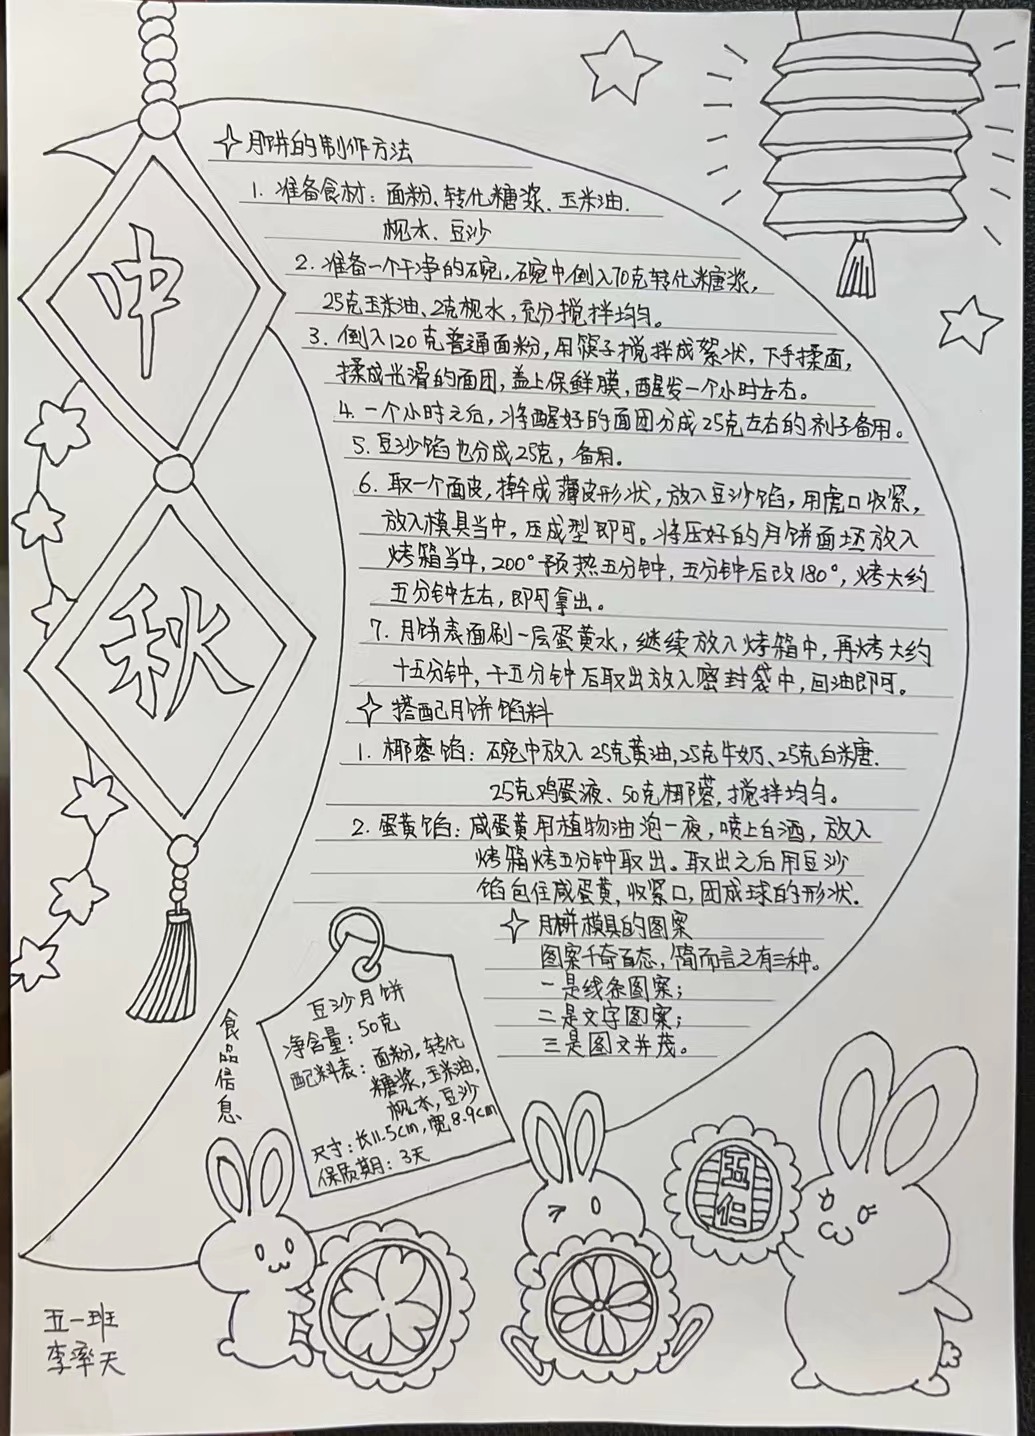 中
秋
月饼的制作方法
1. 准备食材：面粉、转化糖浆、玉米油、
枧水、豆沙
2. 准备一个干净的碗，碗中倒入70克转化糖浆，
25克玉米油、2克枧水，充分搅拌均匀。
3. 倒入120克普通面粉，用筷子搅拌成絮状，下手揉面，
揉成光滑的面团，盖上保鲜膜，醒发一个小时左右。
4. 一个小时之后，将醒好的面团分成25克左右的剂子备用。
5. 豆沙馅也分成25克，备用。
6. 取一个面皮，擀成薄皮形状，放入豆沙馅，用虎口收紧，
放入模具当中，压成型即可。将压好的月饼面坯放入
烤箱当中，200°预热五分钟，五分钟后改180°，烤大约
五分钟左右，即可拿出。
7. 月饼表面刷一层蛋黄水，继续放入烤箱中，再烤大约
十五分钟，十五分钟后取出放入密封袋中，回油即可。
搭配月饼馅料
1. 椰蓉馅：碗中放入25克黄油，25克牛奶、25克白糖、
25克鸡蛋液、50克椰蓉，搅拌均匀。
2. 蛋黄馅：咸蛋黄用植物油泡一夜，喷上白酒，放入
烤箱烤五分钟取出。取出之后用豆沙
馅包住咸蛋黄，收紧口，团成球的形状。
月饼模具的图案
图案千奇百态，简而言之有三种。
一是线条图案；
二是文字图案；
三是图文并茂。
食品信息
豆沙月饼
净含量：50克
配料表：面粉，转化
糖浆，玉米油，
枧水，豆沙
尺寸：长11.5cm，宽8.9cm
保质期：3天
五仁
五一班
李率天